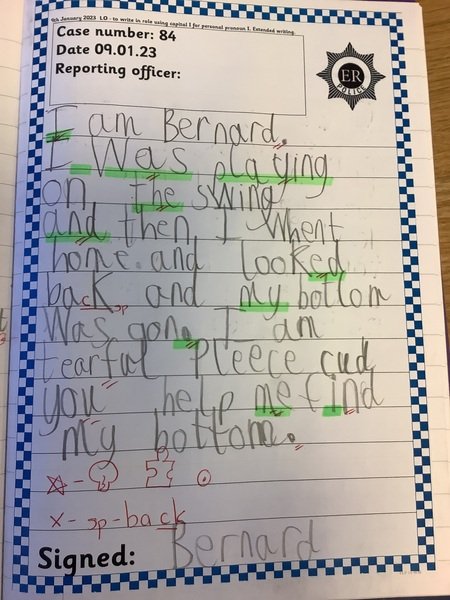 9th January 2023 LO - to write in role using capital I for personal pronoun I. Extended writing.
Case number: 84
Date 09.01.23
Reporting officer:
ER
POLICE
I am Bernard.
I Was playing
on the swing
and then I Whent
home and looked
back and my bottom
sp
Was gon. I am
tearful Pleece cud
you help me find
my bottom.
x - sp - back
Signed: Bernard